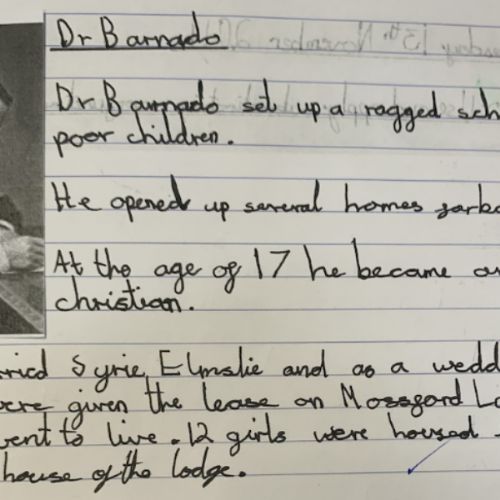 Dr Barnado
Dr Barnado set up a ragged sch
poor children.
He opened up several homes
At the age of 17 he became
christian.
rried Syrie Elmslie and as a wedd
were given the lease on Mossgord Lo
went to live. 12 girls were housed
house of the lodge.